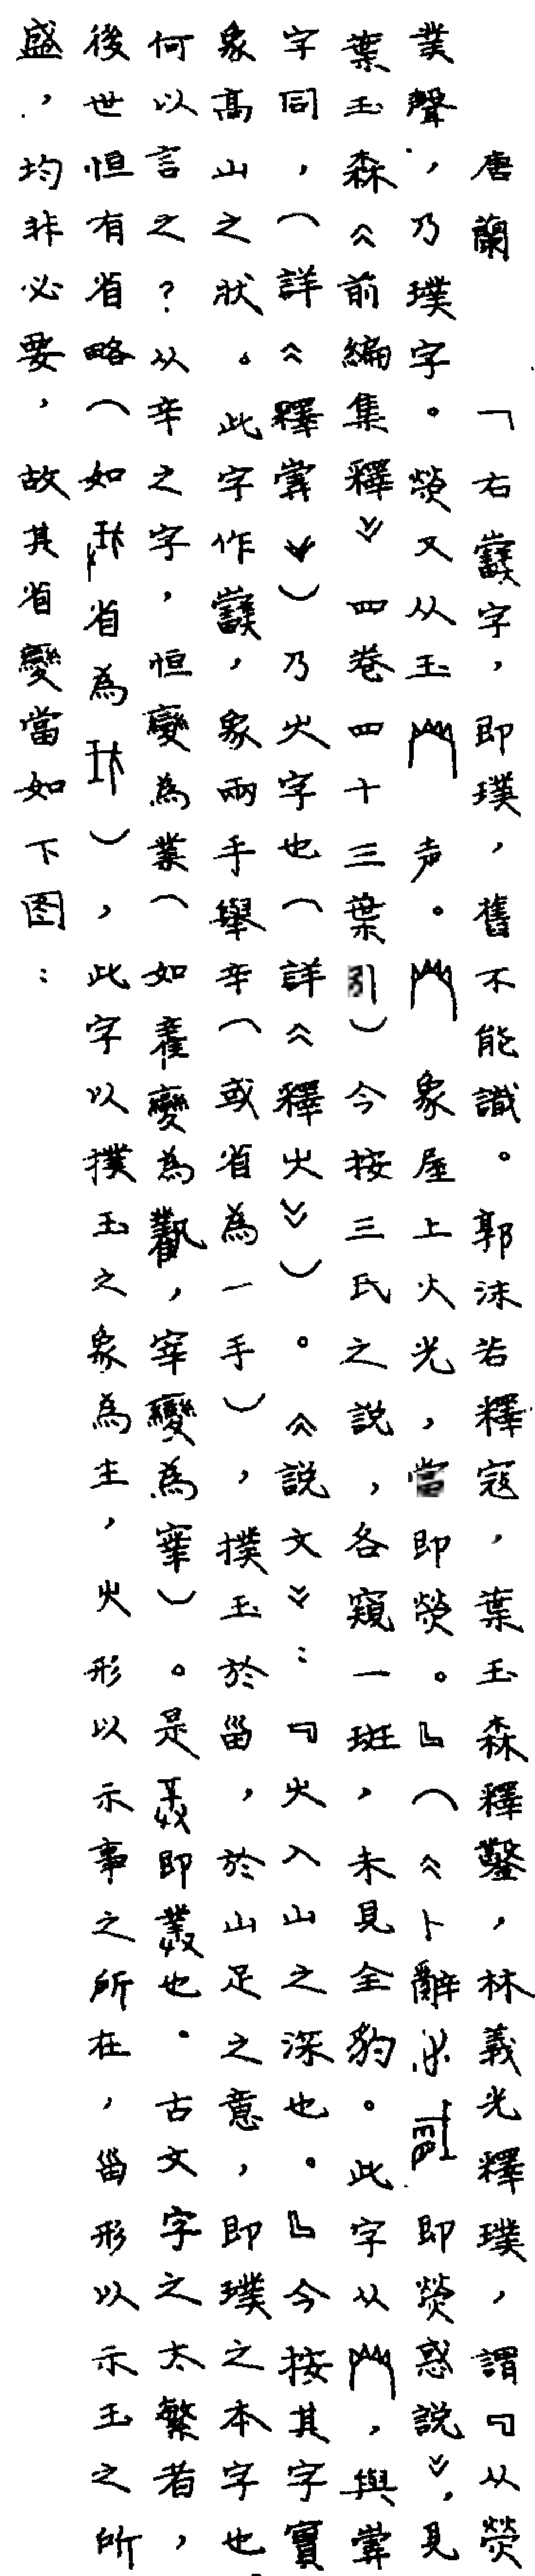 唐蘭　「右字，即璞，舊不能識。郭沫若釋寇，葉玉森釋鑿，林義光釋璞，謂『从熒
菐聲，乃璞字。熒又从玉声。象屋上火光，當即熒。』（《卜辭即熒惑說》，見
葉玉森《前編集釋》四卷四十三葉引）今按三氏之說，各窺一斑，未見全豹。此字从，與
字同，（詳《釋》）乃火字也（詳《釋火》）。《說文》：『火入山之深也。』今按其字實
象高山之狀。此字作，象兩手舉辛（或省為一手），撲玉於甾，於山足之意，即璞之本字也
何以言之？从辛之字，恒變為菐（如變為，宰變為）。是即也。古文字之太繁者，
後世恒有省略（如省為），此字以撲玉之象為主，火形以示事之所在，甾形以示玉之所
盛，均非必要，故其省變當如下图：